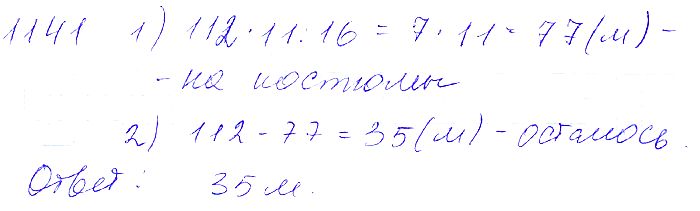 1141 1) 112·11:16 = 7·11 = 77(м) -
- на костюмы
2) 112 - 77 = 35(м) - осталось.
Ответ: 35 м.